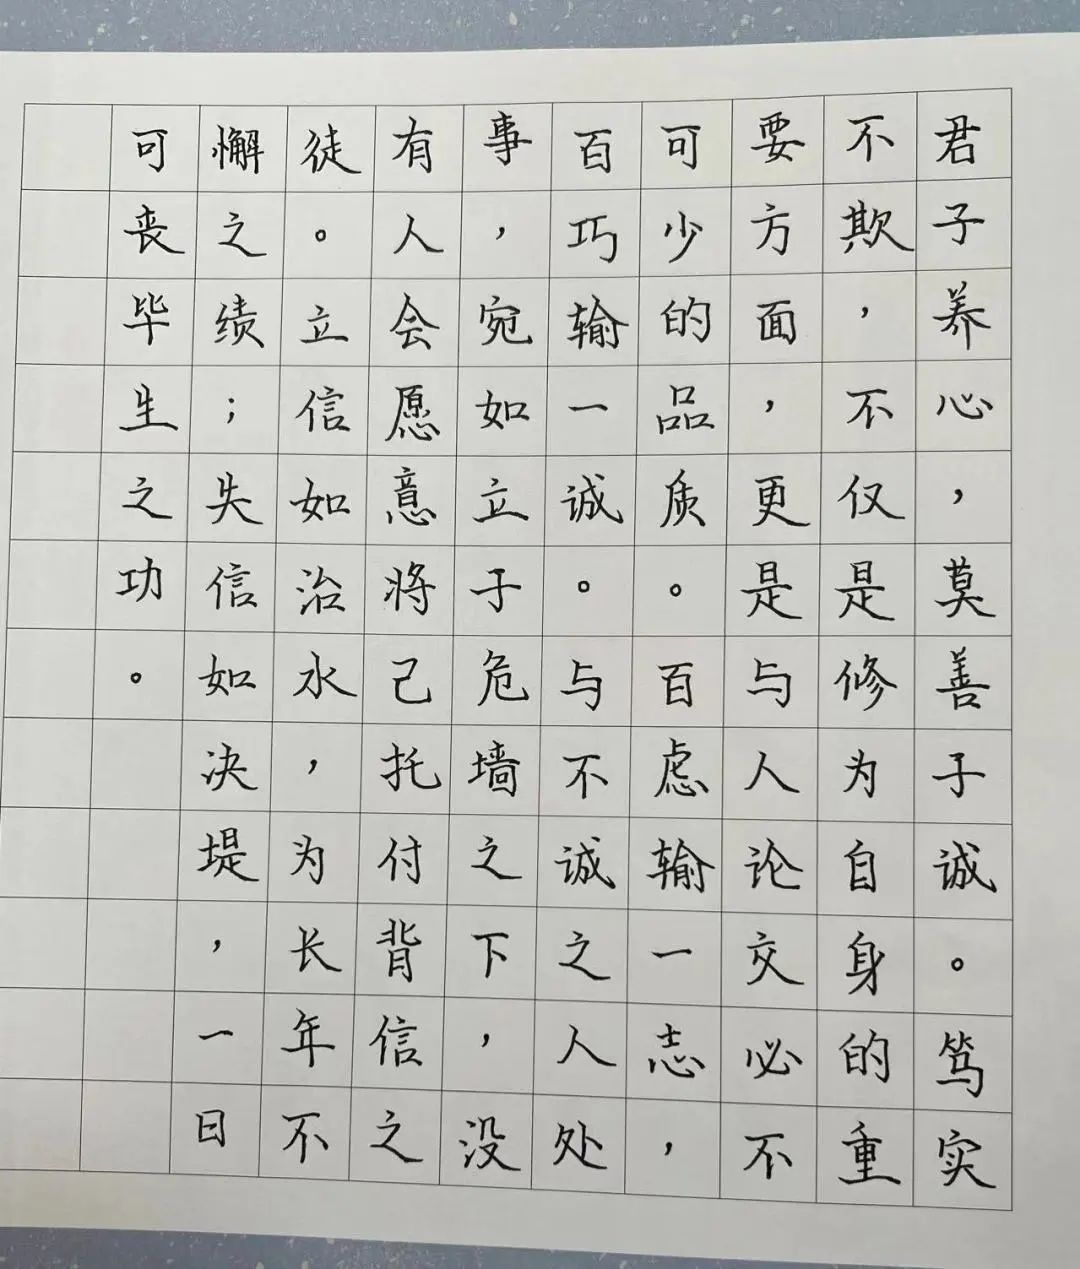 君子养心，莫善于诚。笃实
不欺，不仅是修为自身的重
要方面，更是与人论交必不
可少的品质。百虑输一志，
百巧输一诚。与不诚之人处
事，宛如立于危墙之下，没
有人会愿意将己托付背信之
徒。立信如治水，为长年不
懈之绩；失信如决堤，一日
可丧毕生之功。